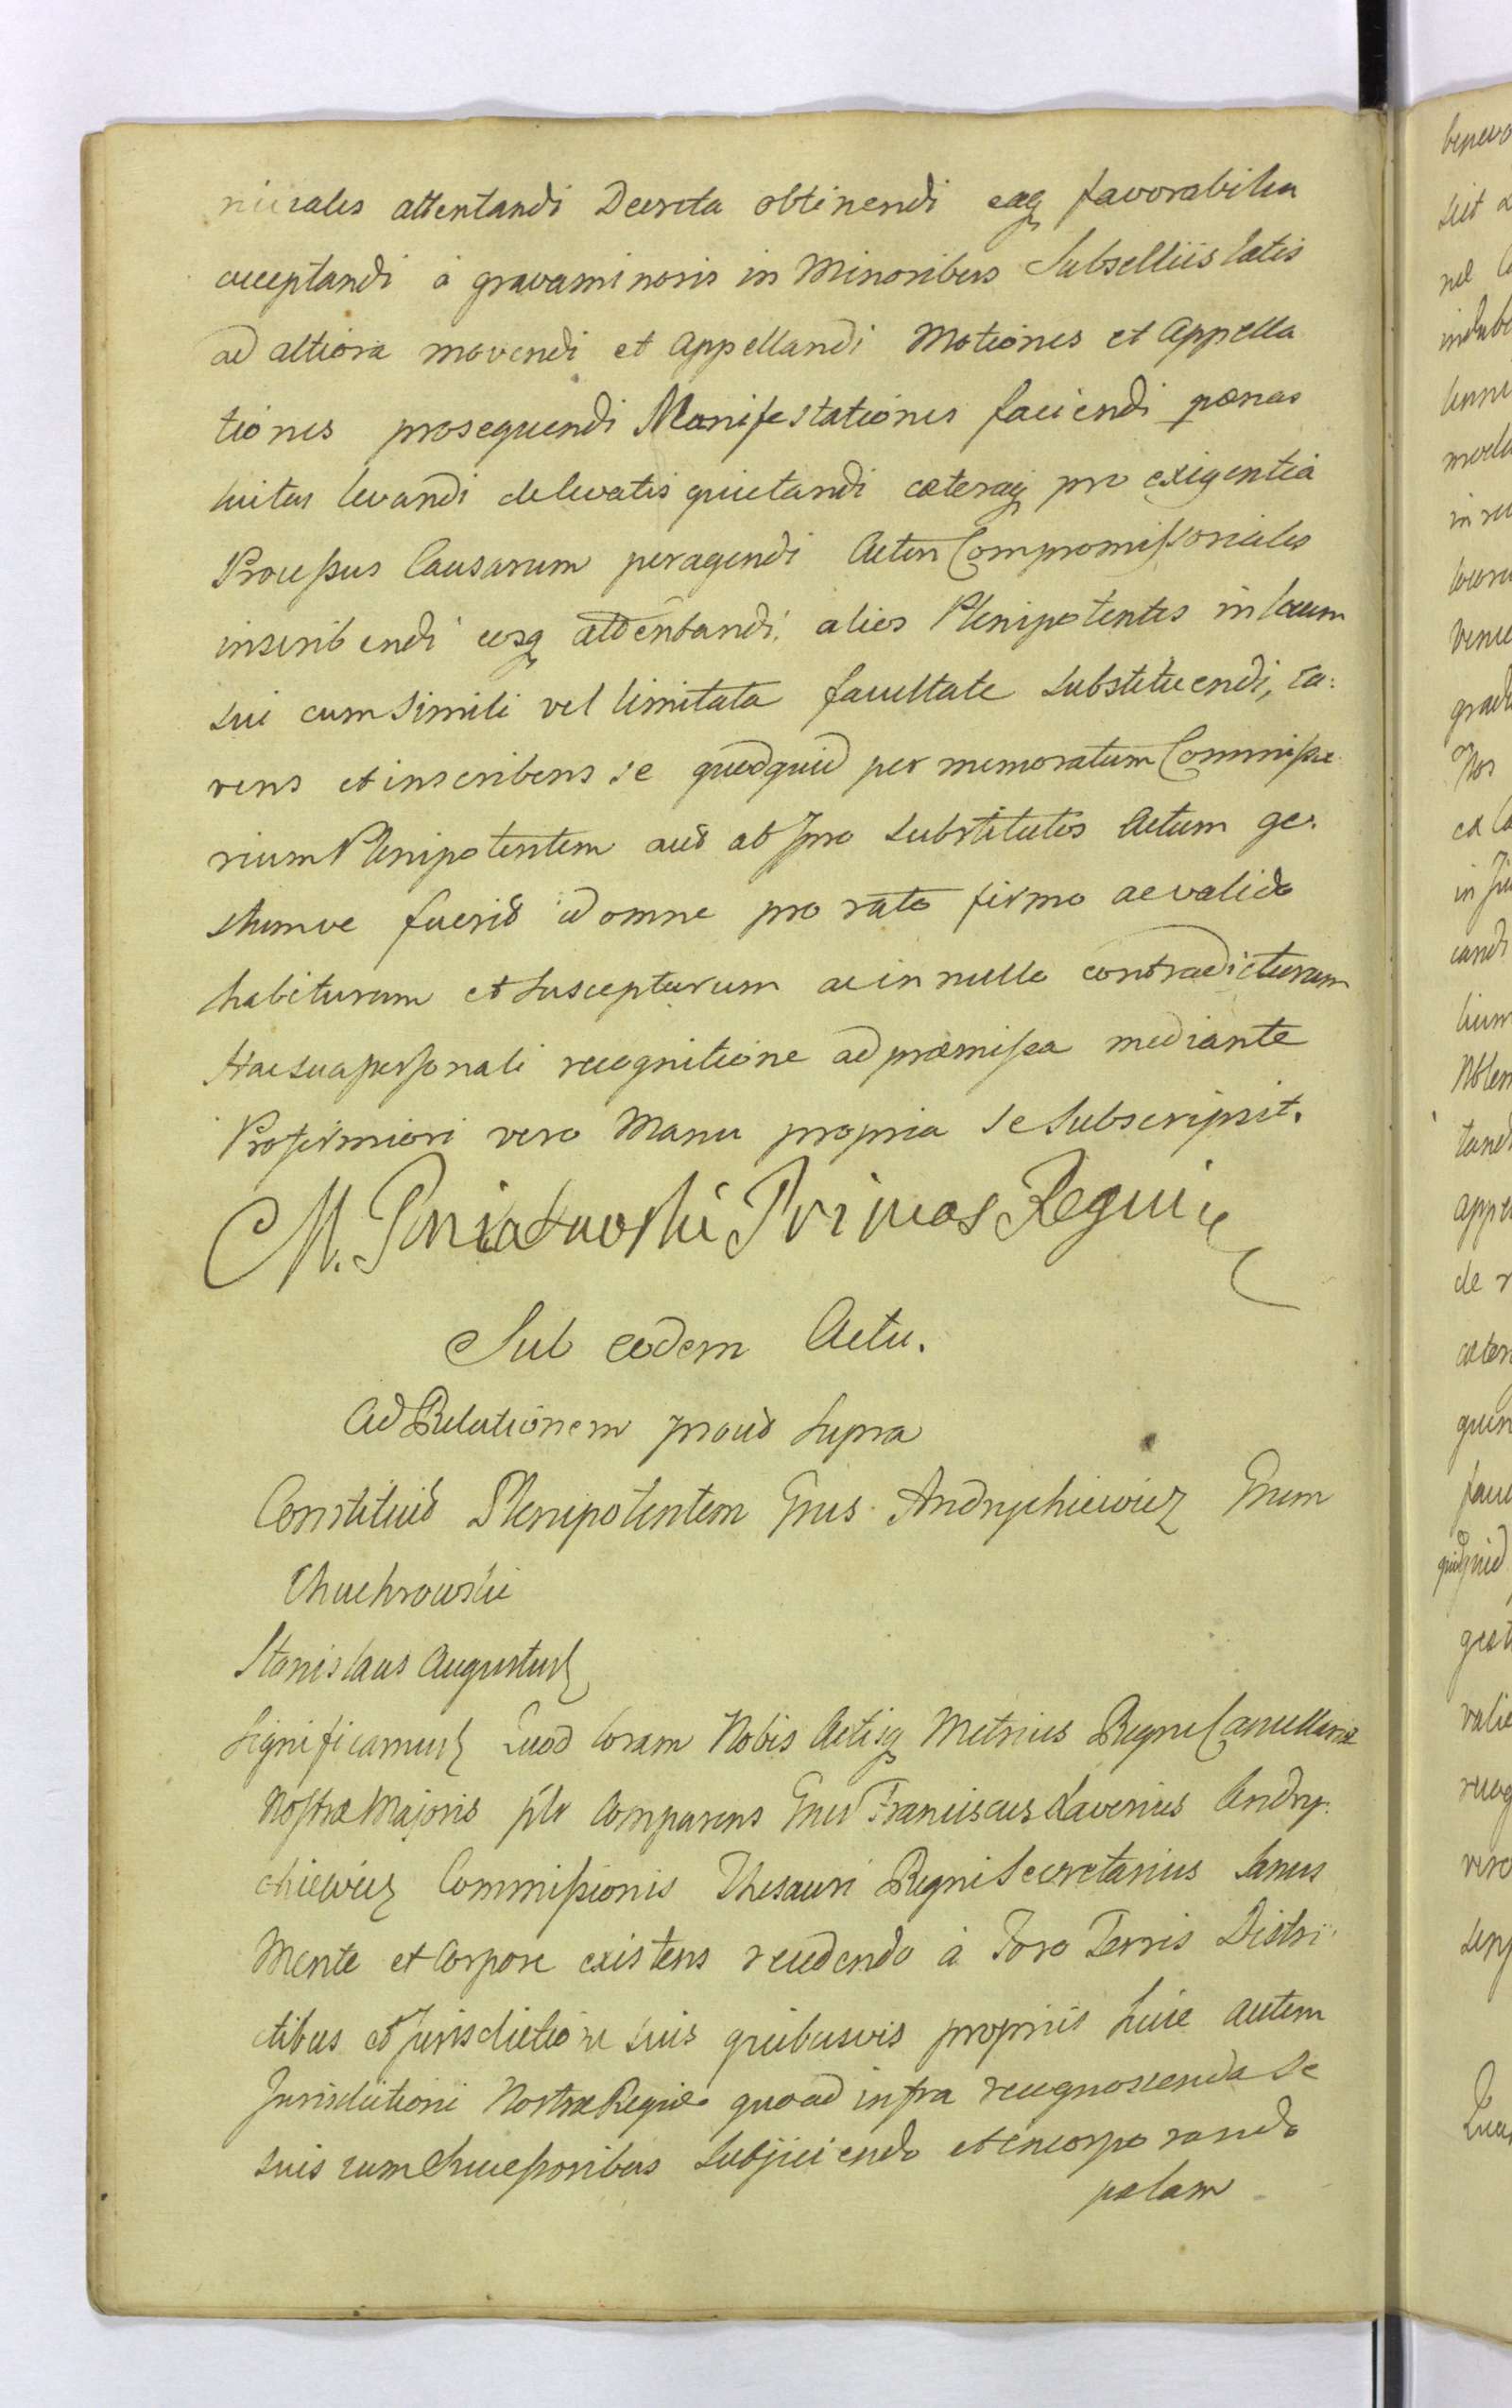 niciales attentandi Decreta obtinendi eaq favorabilia
acceptandi à gravaminosis in Minoribus Subselliis latis
ad altiora movendi et Appellandi Motiones et Appella
tiones prosequendi Manifestationes faciendi pœnas
luitas levandi de levatis quietandi cæteraq pro exigentia
Processus Causarum peragendi Acta Compromissoriales
inscribendi eosq attentandi, alios Plenipotentes in locum
sui cum simili vel limitata facultate substituendi, ca:
vens et inscribens se quodquid per memoratum Commissa
rium Plenipotentem aut ab Ipso substitutos Actum ge:
stumve fuerit id omne pro rato firmo ac valido
habiturum et suscepturum ac in nullo contradicturum
Hac sua personali recognitione ad præmissa mediante
Pro firmiori vero Manu propria se subscripsit.
M. Poniatowski Primas Regni
Sub eodem Actu.
Ad Relationem prout supra
Constituit Plenipotentem Gnus Andrychiewicz Gnum
Chuchrowski
Stanislaus Augustus
Significamus Quod Coram Nobis Actisq Metrices Regni Cancellariæ
Nostræ Majoris plr Comparens Gnus Franciscus Xaverius Andry:
chiewicz Commissionis Thesauri Regni Secretarius Sanus
Mente et Corpore existens recedendo à Foro Terris Distri:
ctibus et Jurisdictione suis quibusvis propriis huic autem
Jurisdictioni Nostræ Regiæ quoad infra recognoscenda se
suis cum Successoribus subjiciendo et incorporando
palam